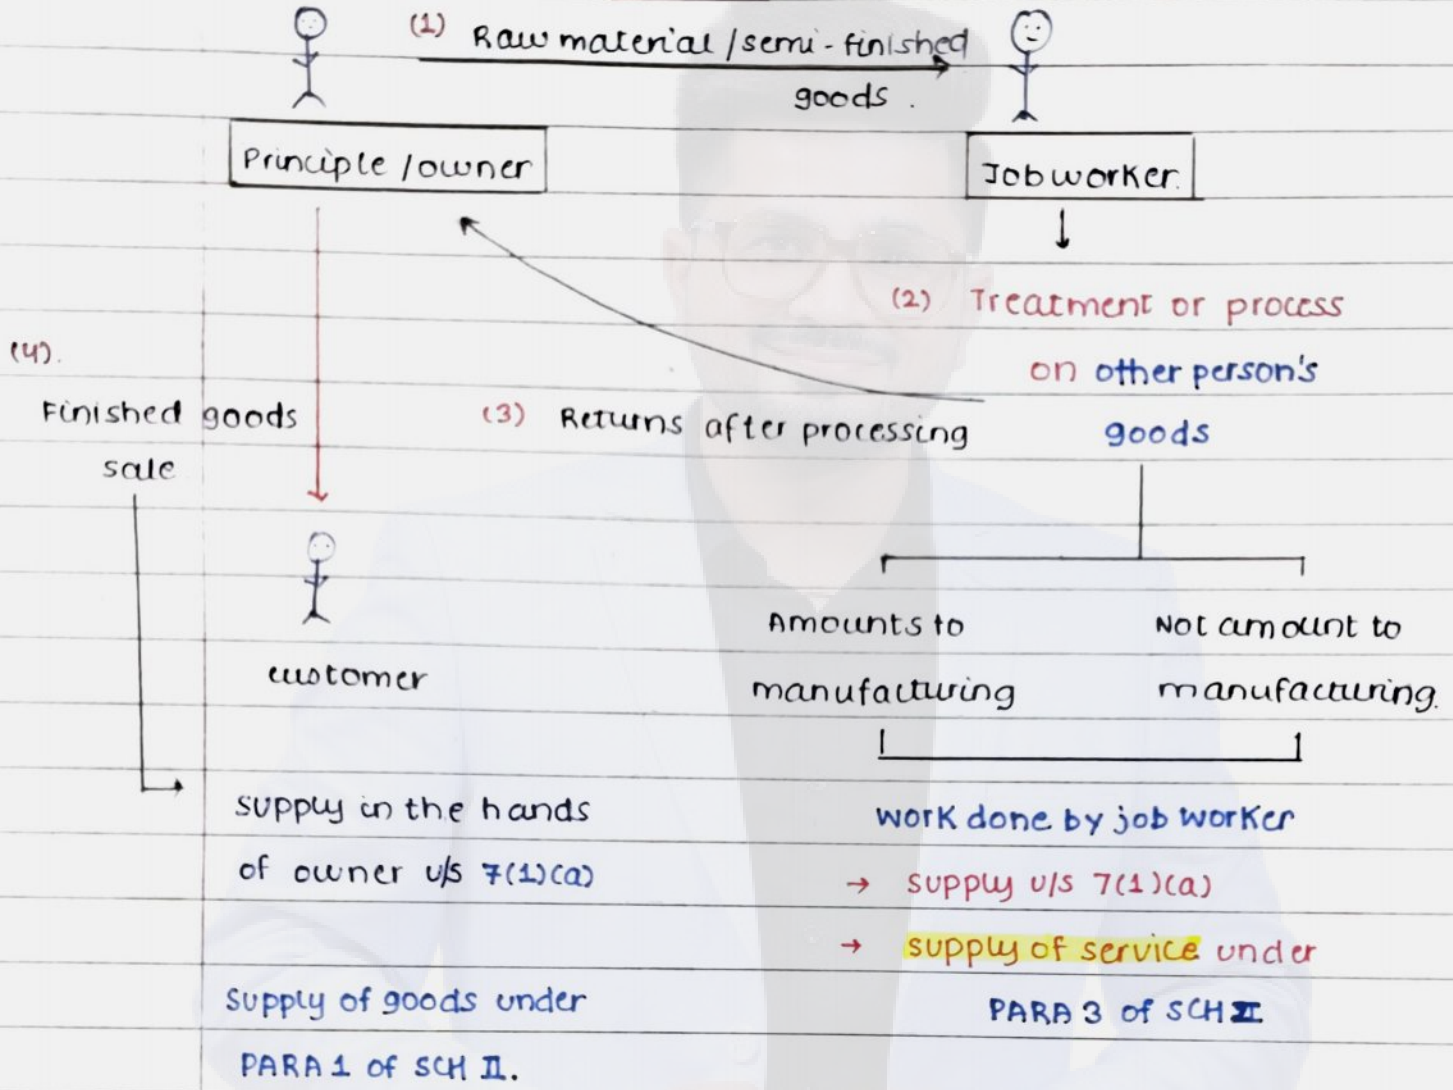 (1) Raw material / semi-finished
goods.
Principle / owner
Jobworker.
(2) Treatment or process
on other person's
goods
(3) Returns after processing
(4).
Finished goods
sale
customer
Amounts to
manufacturing
Not amount to
manufacturing.
supply in the hands
of owner u/s 7(1)(a)
Supply of goods under
PARA 1 of SCH II.
work done by job worker
→ supply u/s 7(1)(a)
→ supply of service under
PARA 3 of SCH II